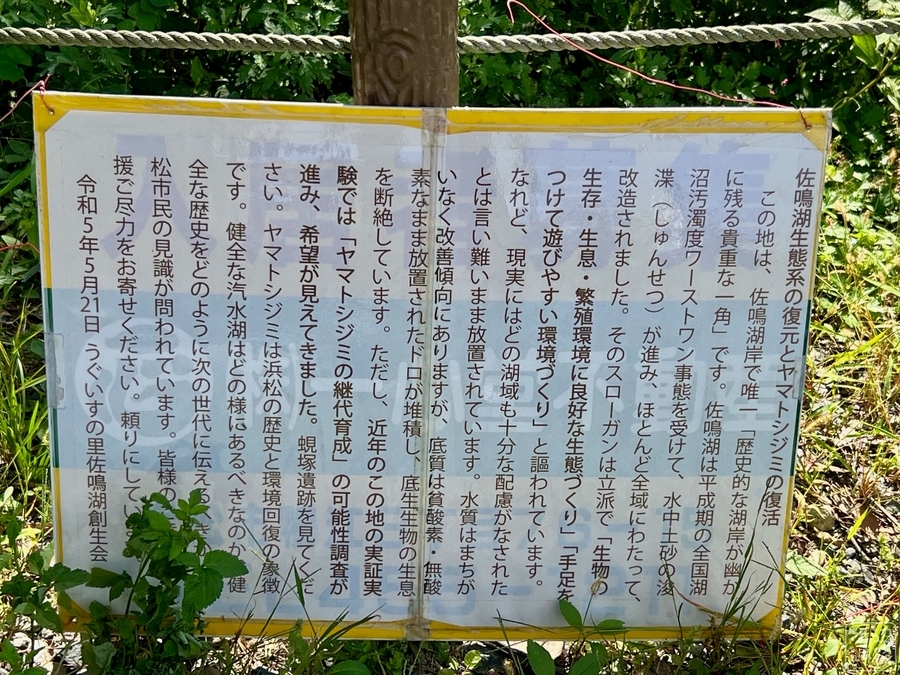 佐鳴湖生態系の復元とヤマトシジミの復活
この地は、佐鳴湖岸で唯一「歴史的な湖岸が幽か
に残る貴重な一角」です。佐鳴湖は平成期の全国湖
沼汚濁度ワーストワン事態を受けて、水中土砂の浚
渫（しゅんせつ）が進み、ほとんど全域にわたって、
改造されました。そのスローガンは立派で「生物の
生存・生息・繁殖環境に良好な生態づくり」「手足を
つけて遊びやすい環境づくり」と謳われています。
なれど、現実にはどの湖域も十分な配慮がなされた
とは言い難いまま放置されています。水質はまちが
いなく改善傾向にありますが、底質は貧酸素・無酸
素なまま放置されたドロが堆積し、底生生物の生息
を断絶しています。ただし、近年のこの地の実証実
験では「ヤマトシジミの継代育成」の可能性調査が
進み、希望が見えてきました。蜆塚遺跡を見てくだ
さい。ヤマトシジミは浜松の歴史と環境回復の象徴
です。健全な汽水湖はどの様にあるべきなのか、健
全な歴史をどのように次の世代に伝える
松市民の見識が問われています。皆様の
援ご尽力をお寄せください。頼りにしてい
令和5年5月21日 うぐいすの里佐鳴湖創生会